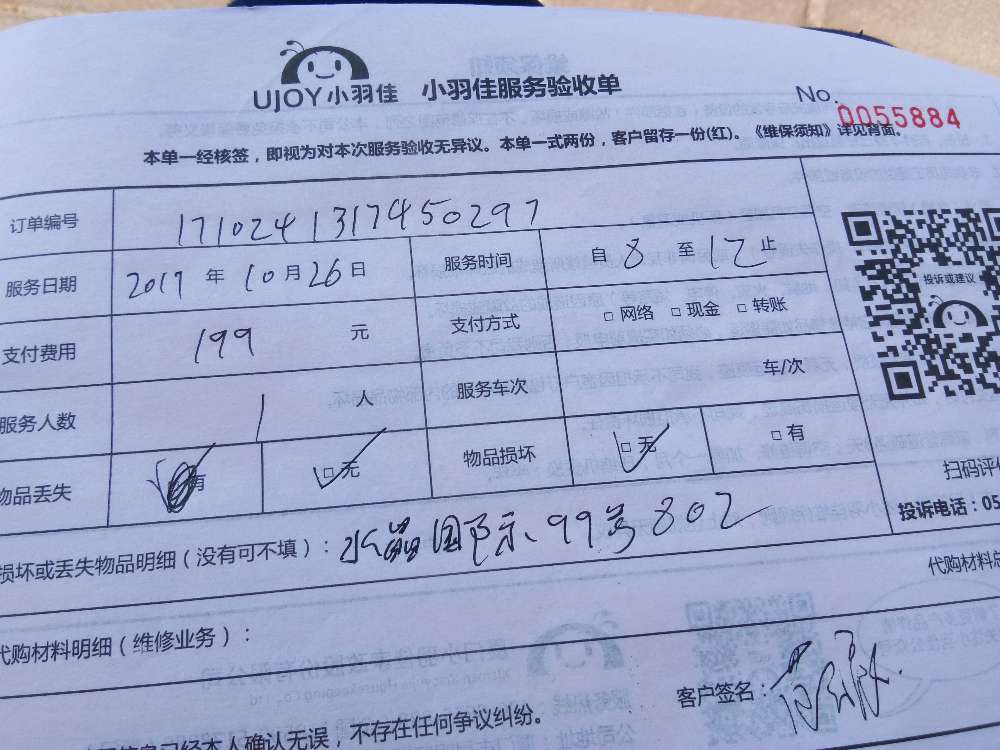 UJOY小羽佳 小羽佳服务验收单
No. 0055884
本单一经核签，即视为对本次服务验收无异议。本单一式两份，客户留存一份(红)。《维保须知》详见背面。
订单编号 1710241317450297
服务日期 2017 年 10 月 26 日 服务时间 自 8 至 12 止
投诉或建议
支付费用 199 元 支付方式 □ 网络 □ 现金 □ 转账
服务人数 1 人 服务车次 车/次
物品丢失 □有 □无 物品损坏 □无 □有
扫码评价
投诉电话：05
损坏或丢失物品明细（没有可不填）： 99号802
代购材料总
代购材料明细（维修业务）：
客户签名：
信息已经本人确认无误，不存在任何争议纠纷。